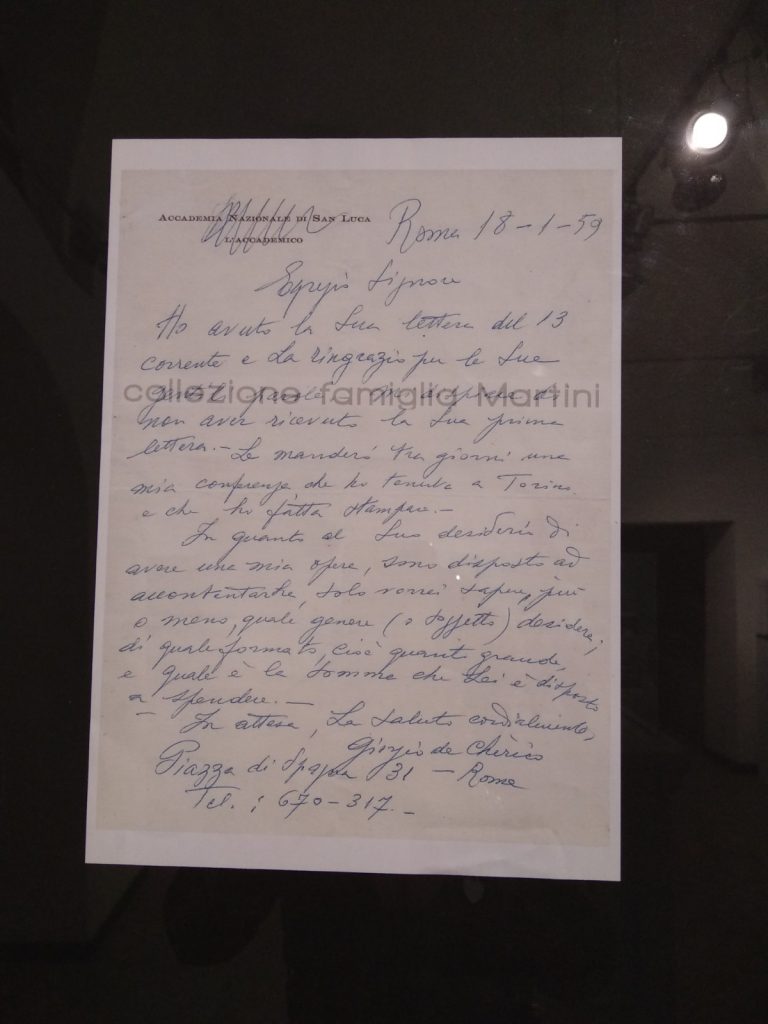 Accademia Nazionale di San Luca
L'Accademico
Roma 18-1-59
Egregio Signore
Ho avuto la Sua lettera del 13
corrente e La ringrazio per le Sue
gentili parole. Mi dispiace di
collezione famiglia Martini
non aver ricevuto la Sua prima
lettera.- Le manderó tra giorni una
mia conferenza che ho tenuta a Torino
e che ho fatta stampare.-
In quanto al Suo desiderio di
avere una mia opera, sono disposto ad
accontentarla, solo vorrei sapere, più
o meno, quale genere (o soggetto) desidera;
di quale formato, cioè quanto grande,
e quale è la somma che Lei è disposto
a spendere.-
In attesa, La saluto cordialmente,
Giorgio de Chirico
Piazza di Spagna 31 - Roma
Tel.: 670-317.-